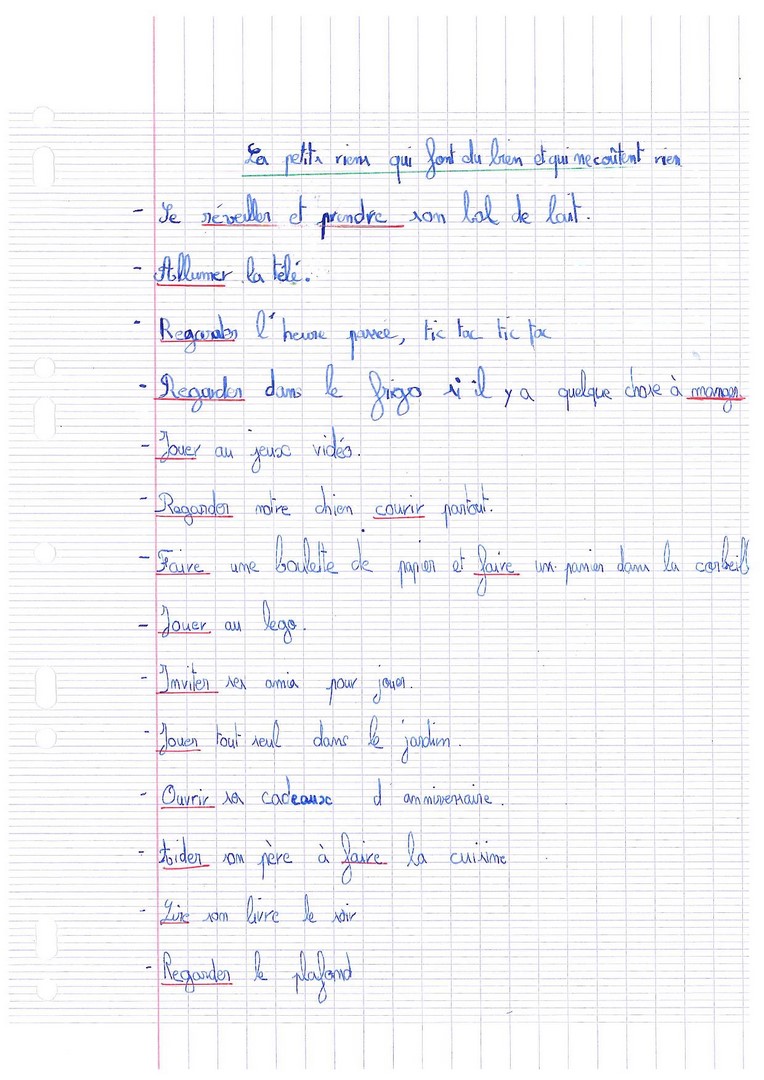 Les petits riens qui font du bien et qui ne coûtent rien
- Se réveiller et prendre son bol de lait.
- Allumer la télé.
- Regarder l'heure passée, tic tac tic tac
- Regarder dans le frigo si il y a quelque chose à manger.
- Jouer au jeux vidéo.
- Regarder notre chien courir partout.
- Faire une boulette de papier et faire un panier dans la corbeill
- Jouer au lego.
- Inviter ses amis pour jouer.
- Jouer tout seul dans le jardin.
- Ouvrir ses cadeaux d'anniversaire.
- Aider son père à faire la cuisine
- Lire son livre le soir
- Regarder le plafond